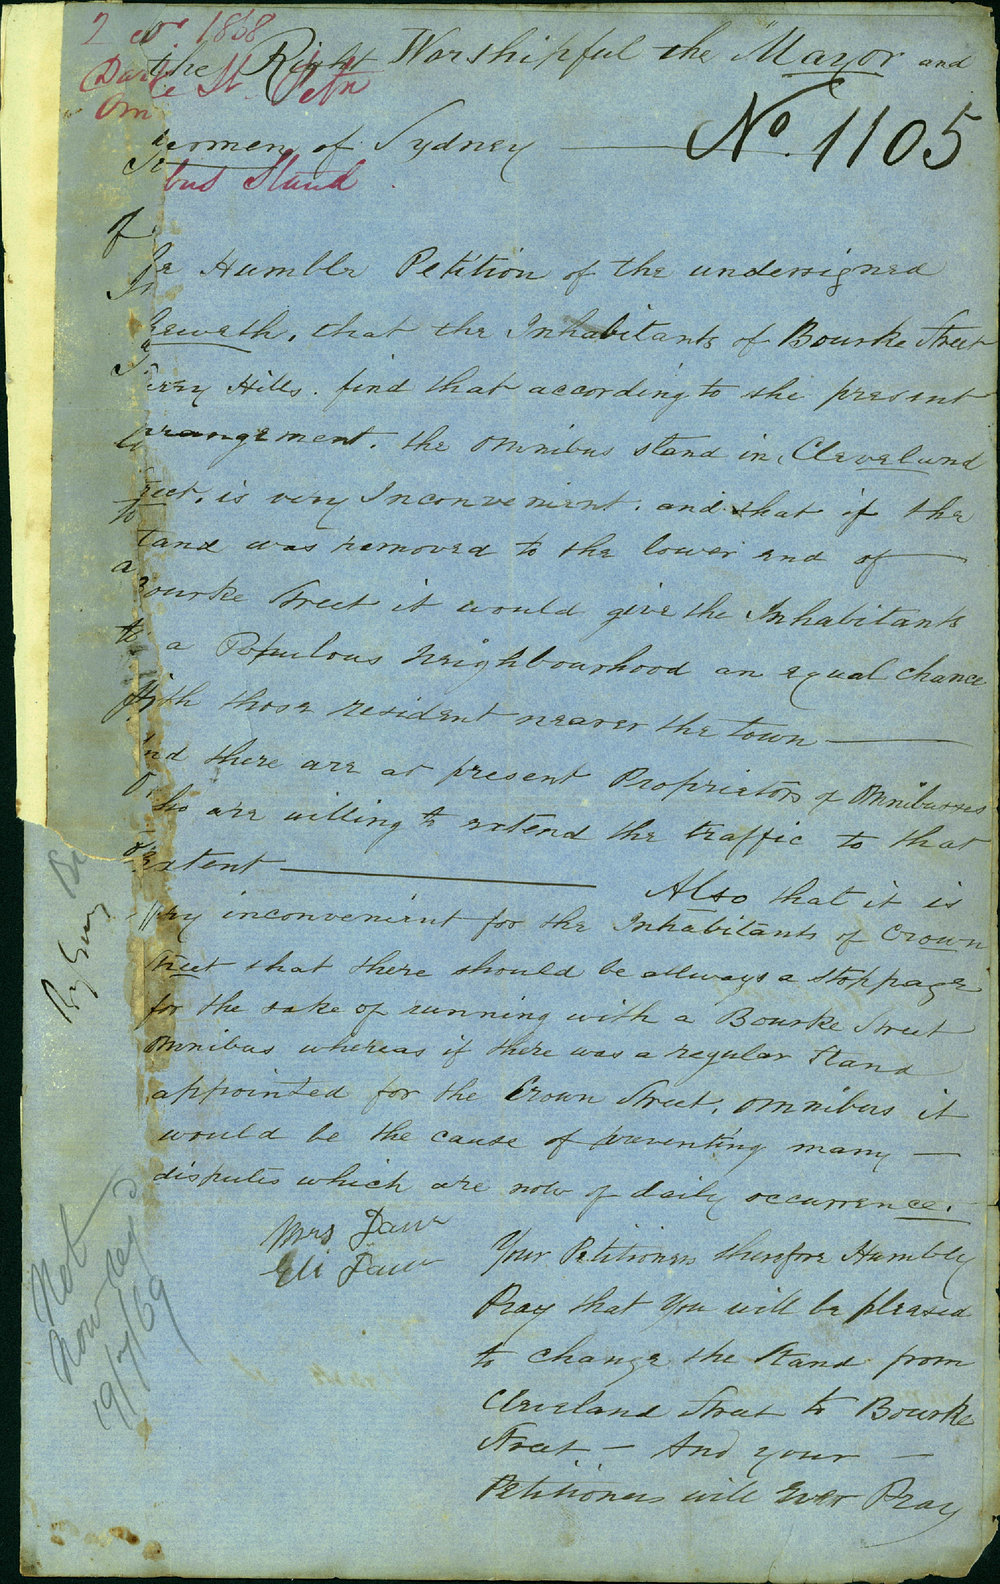 2 1868
the Right Worshipful the Mayor and
St. Petn
Om
No. 1105
ermen of Sydney
bus Stand
e Humble Petition of the undersigned
eweth, that the Inhabitants of Bourke Street
rrey Hills. find that according to the present
rrangement. the omnibus stand in, Cleveland
reet. is very Inconvenient. and that if the
tand was removed to the lower end of
Bourke Street it would give the Inhabitants
a Populous neighbourhood an equal chance
With those resident nearer the town
nd there are at present Proprietors of Omnibusses
ho are willing to extend the traffic to that
extent
Also that it is
ery inconvenient for the Inhabitants of Crown
treet that there should be allways a stoppage
for the sake of running with a Bourke Street
Omnibus whereas if there was a regular Stand
appointed for the Crown Street, omnibus it
would be the cause of preventing many
disputes which are now of daily occurrence.
Mrs
Eli
Your Petitioners therefore Humbly
Pray that You will be pleased
to change the Stand from
Cleveland Street to Bourke
Street - And your
Petitioners will Ever Pray
Not
now
19/7/69